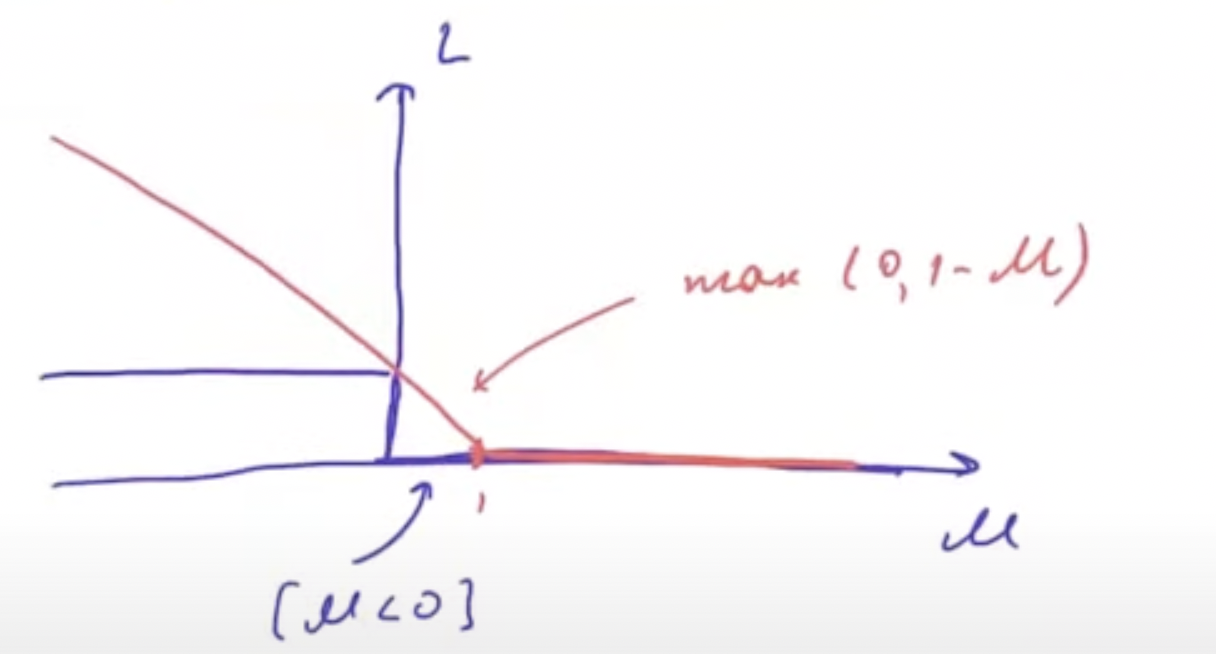 L
max (0, 1 - M)
1
M
[M < 0]